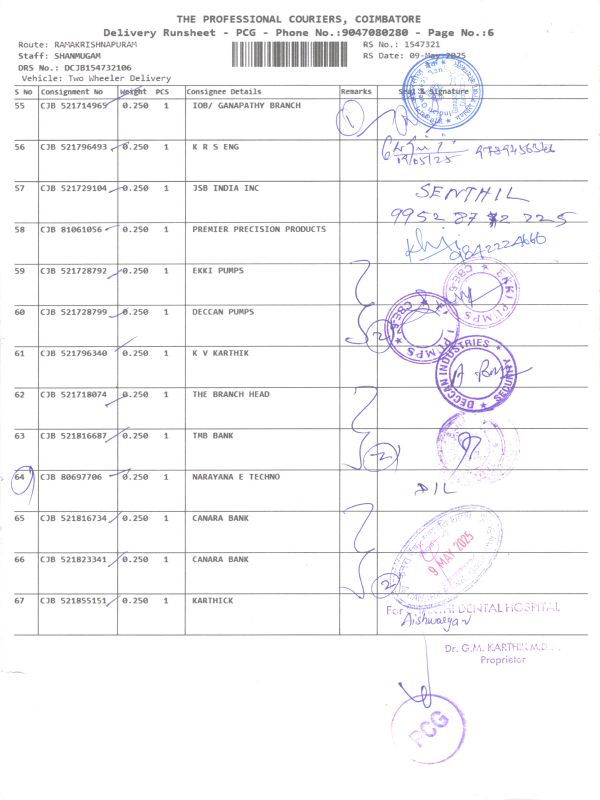 THE PROFESSIONAL COURIERS, COIMBATORE
Delivery Runsheet - PCG - Phone No.:9047080280 - Page No.:6
Route: RAMAKRISHNAPURAM RS No.: 1547321
Staff: SHANMUGAM RS Date: 09-May-2025
DRS No.: DCJB154732106
Vehicle: Two Wheeler Delivery
S No Consignment No Weight PCS Consignee Details Remarks Seal & Signature
55 CJB 521714965 0.250 1 IOB/ GANAPATHY BRANCH
1
56 CJB 521796493 0.250 1 K R S ENG
57 CJB 521729104 0.250 1 JSB INDIA INC SENTHIL
58 CJB 81061056 0.250 1 PREMIER PRECISION PRODUCTS
9842224666
59 CJB 521728792 0.250 1 EKKI PUMPS
EKKI PUMPS CBE-6
60 CJB 521728799 0.250 1 DECCAN PUMPS
2
61 CJB 521796340 0.250 1 K V KARTHIK
DECCAN INDUSTRIES SECURITY
62 CJB 521718074 0.250 1 THE BRANCH HEAD
63 CJB 521816687 0.250 1 TMB BANK
2
64 CJB 80697706 0.250 1 NARAYANA E TECHNO
65 CJB 521816734 0.250 1 CANARA BANK
9 MAY 2025
66 CJB 521823341 0.250 1 CANARA BANK
2
67 CJB 521855151 0.250 1 KARTHICK
For DENTAL HOSPITAL
Aishwarya
Dr. G.M. KARTHIK
Proprietor
PCG